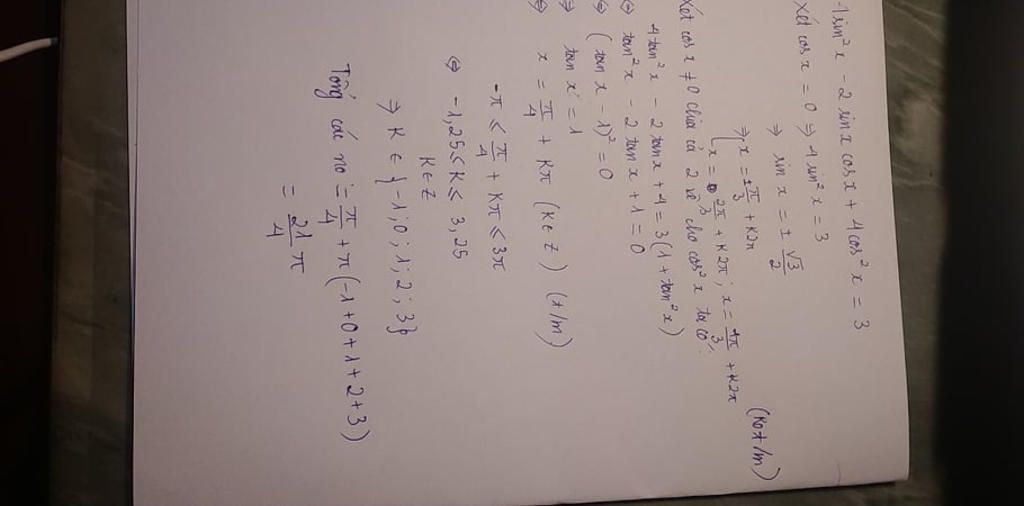 4sin²x - 2 sin x cos x + 4cos²x = 3
Xét cos x = 0 ⇒ 4 sin²x = 3
⇒ sin x = ± √3/2
⇒ [ x = ±π/3 + K2π
x = 2π/3 + K2π ; x = 4π/3 + K2π (Ko t/m)
Xét cos x ≠ 0 chia cả 2 vế cho cos²x ta có:
4tan²x - 2 tan x + 4 = 3(1 + tan²x)
⇔ tan²x - 2 tan x + 1 = 0
⇔ (tan x - 1)² = 0
⇒ tan x = 1
⇔ x = π/4 + Kπ (K ∈ Z) (t/m)
-π ≤ π/4 + Kπ ≤ 3π
⇔ -1,25 ≤ K ≤ 3,25
K ∈ Z
⇒ K ∈ {-1; 0; 1; 2; 3}
Tổng các no = π/4 + π(-1+0+1+2+3)
= 21/4 π